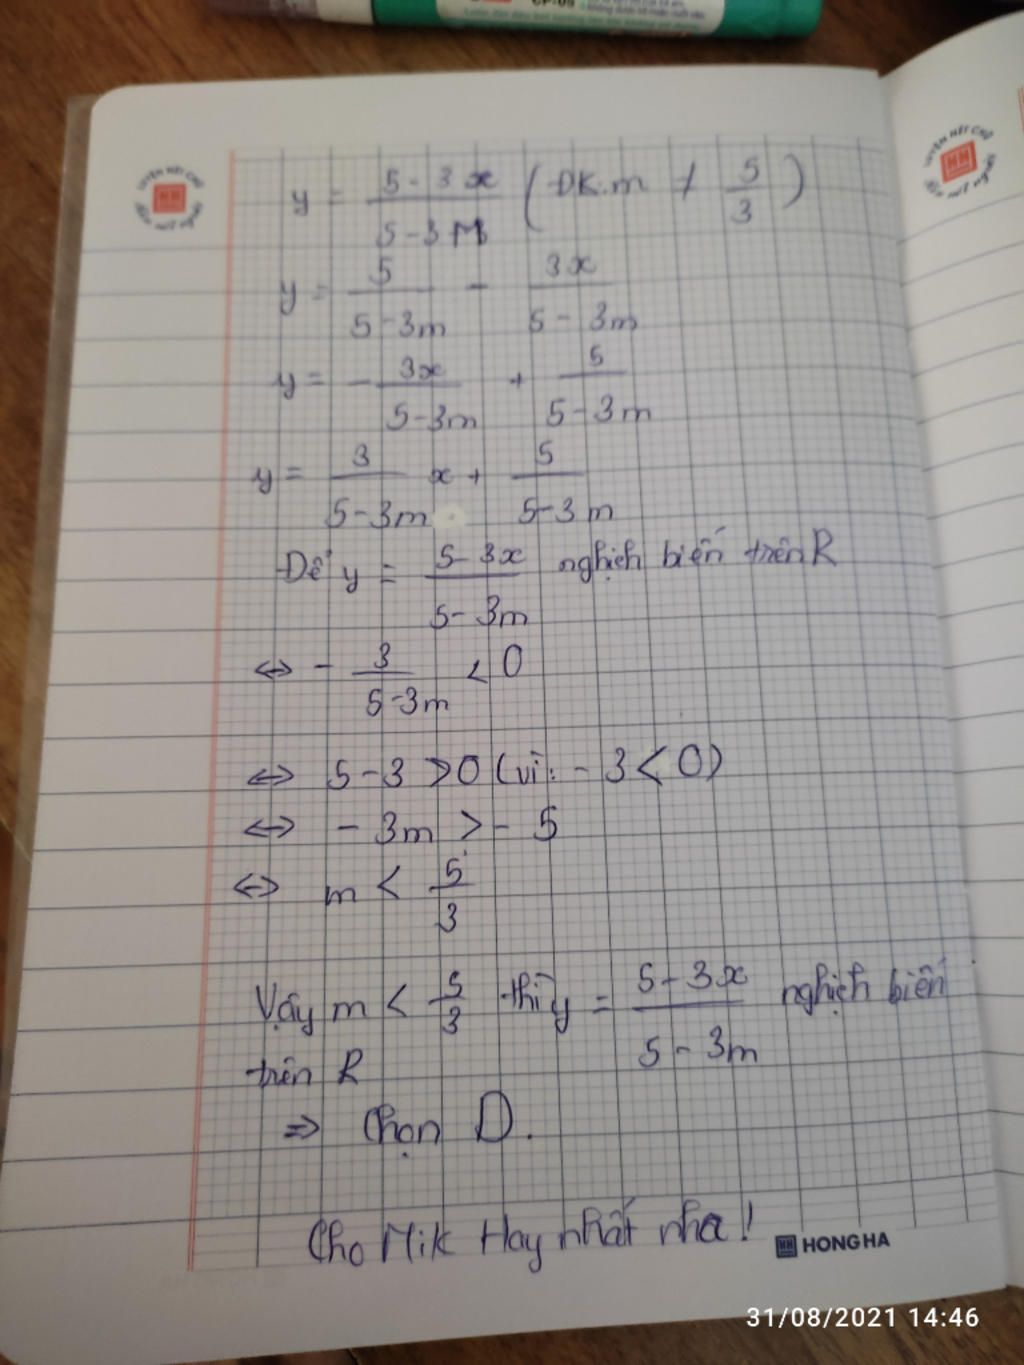 y = \frac{5-3x}{5-3M} (ĐK: m ≠ \frac{5}{3})
y = \frac{5}{5-3m} - \frac{3x}{5-3m}
y = -\frac{3x}{5-3m} + \frac{5}{5-3m}
y = \frac{3}{5-3m} x + \frac{5}{5-3m}
Để y = \frac{5-3x}{5-3m} nghịch biến trên R
<-> - \frac{3}{5-3m} < 0
<-> 5-3 > 0 (vì: -3 < 0)
<-> -3m > -5
<-> m < \frac{5}{3}
Vậy m < \frac{5}{3} thì y = \frac{5-3x}{5-3m} nghịch biến
trên R
=> Chọn D.
Cho Mik Hay nhất nha!
HONG HA
31/08/2021 14:46